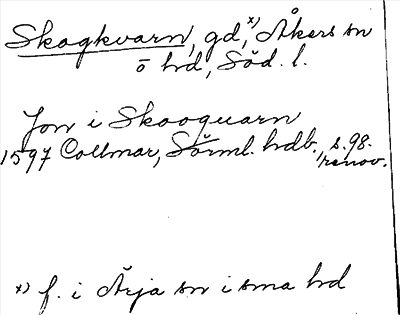 Skogkvarn, gd,ˣ⁾ Åkers sn
ö hd, Söd. l.
Jon i Skooquarn
1597 Collmar, Sörml. hdb., s. 98.
renov.
x) f. i Ärja sn i sma hd